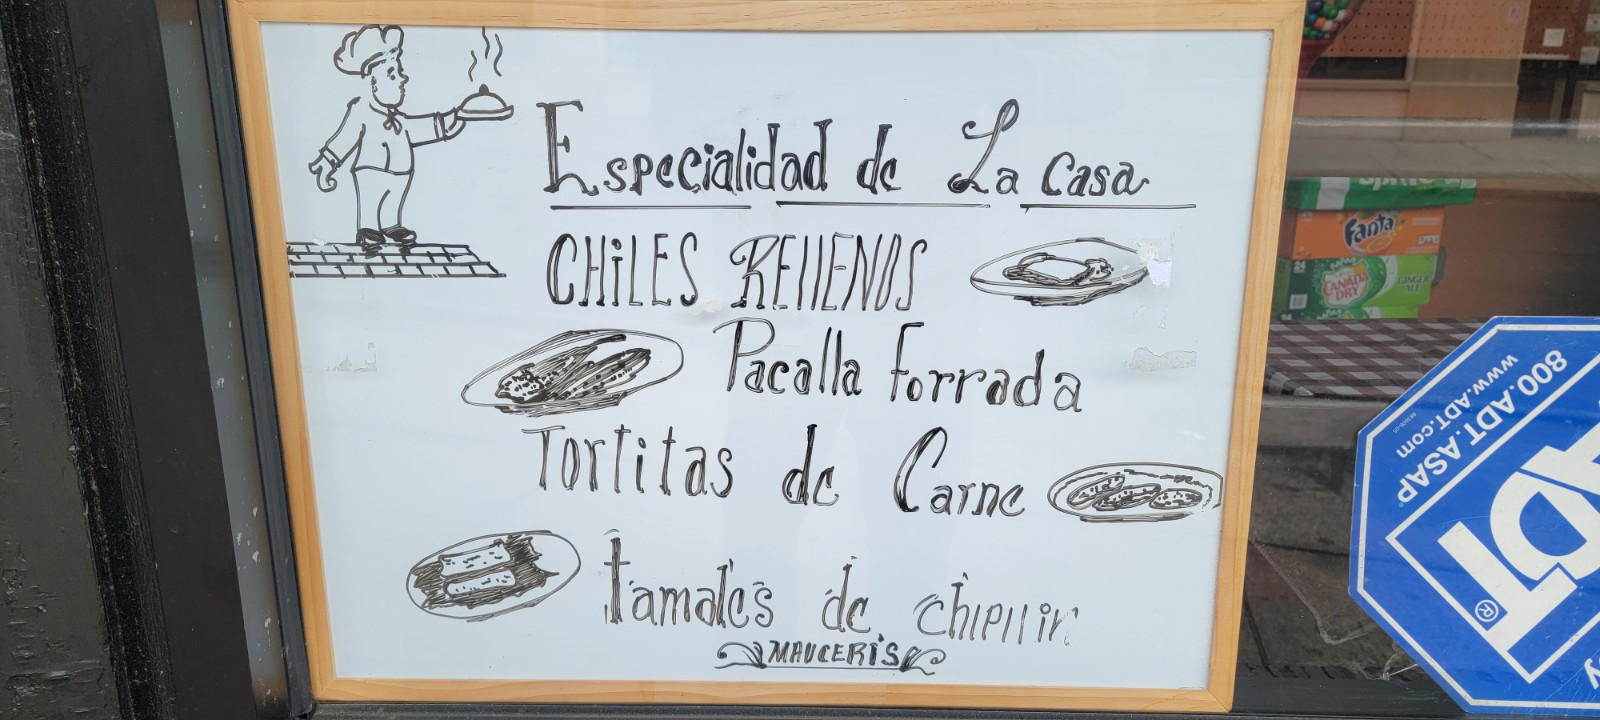 Especialidad de La Casa
CHiLES RELLENOS
Pacalla forrada
Tortitas de Carne
tamales de chipilin
MAUCERIS
Fanta
CANADA DRY
GINGER ALE
800.ADT.ASAP
www.ADT.com
ADT